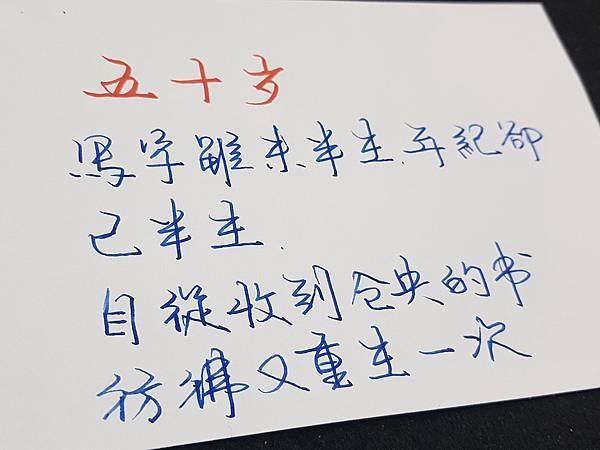 五十方
寫字雖未半生.年紀卻
己半生.
自從收到仓央的书
彷彿又重生一次